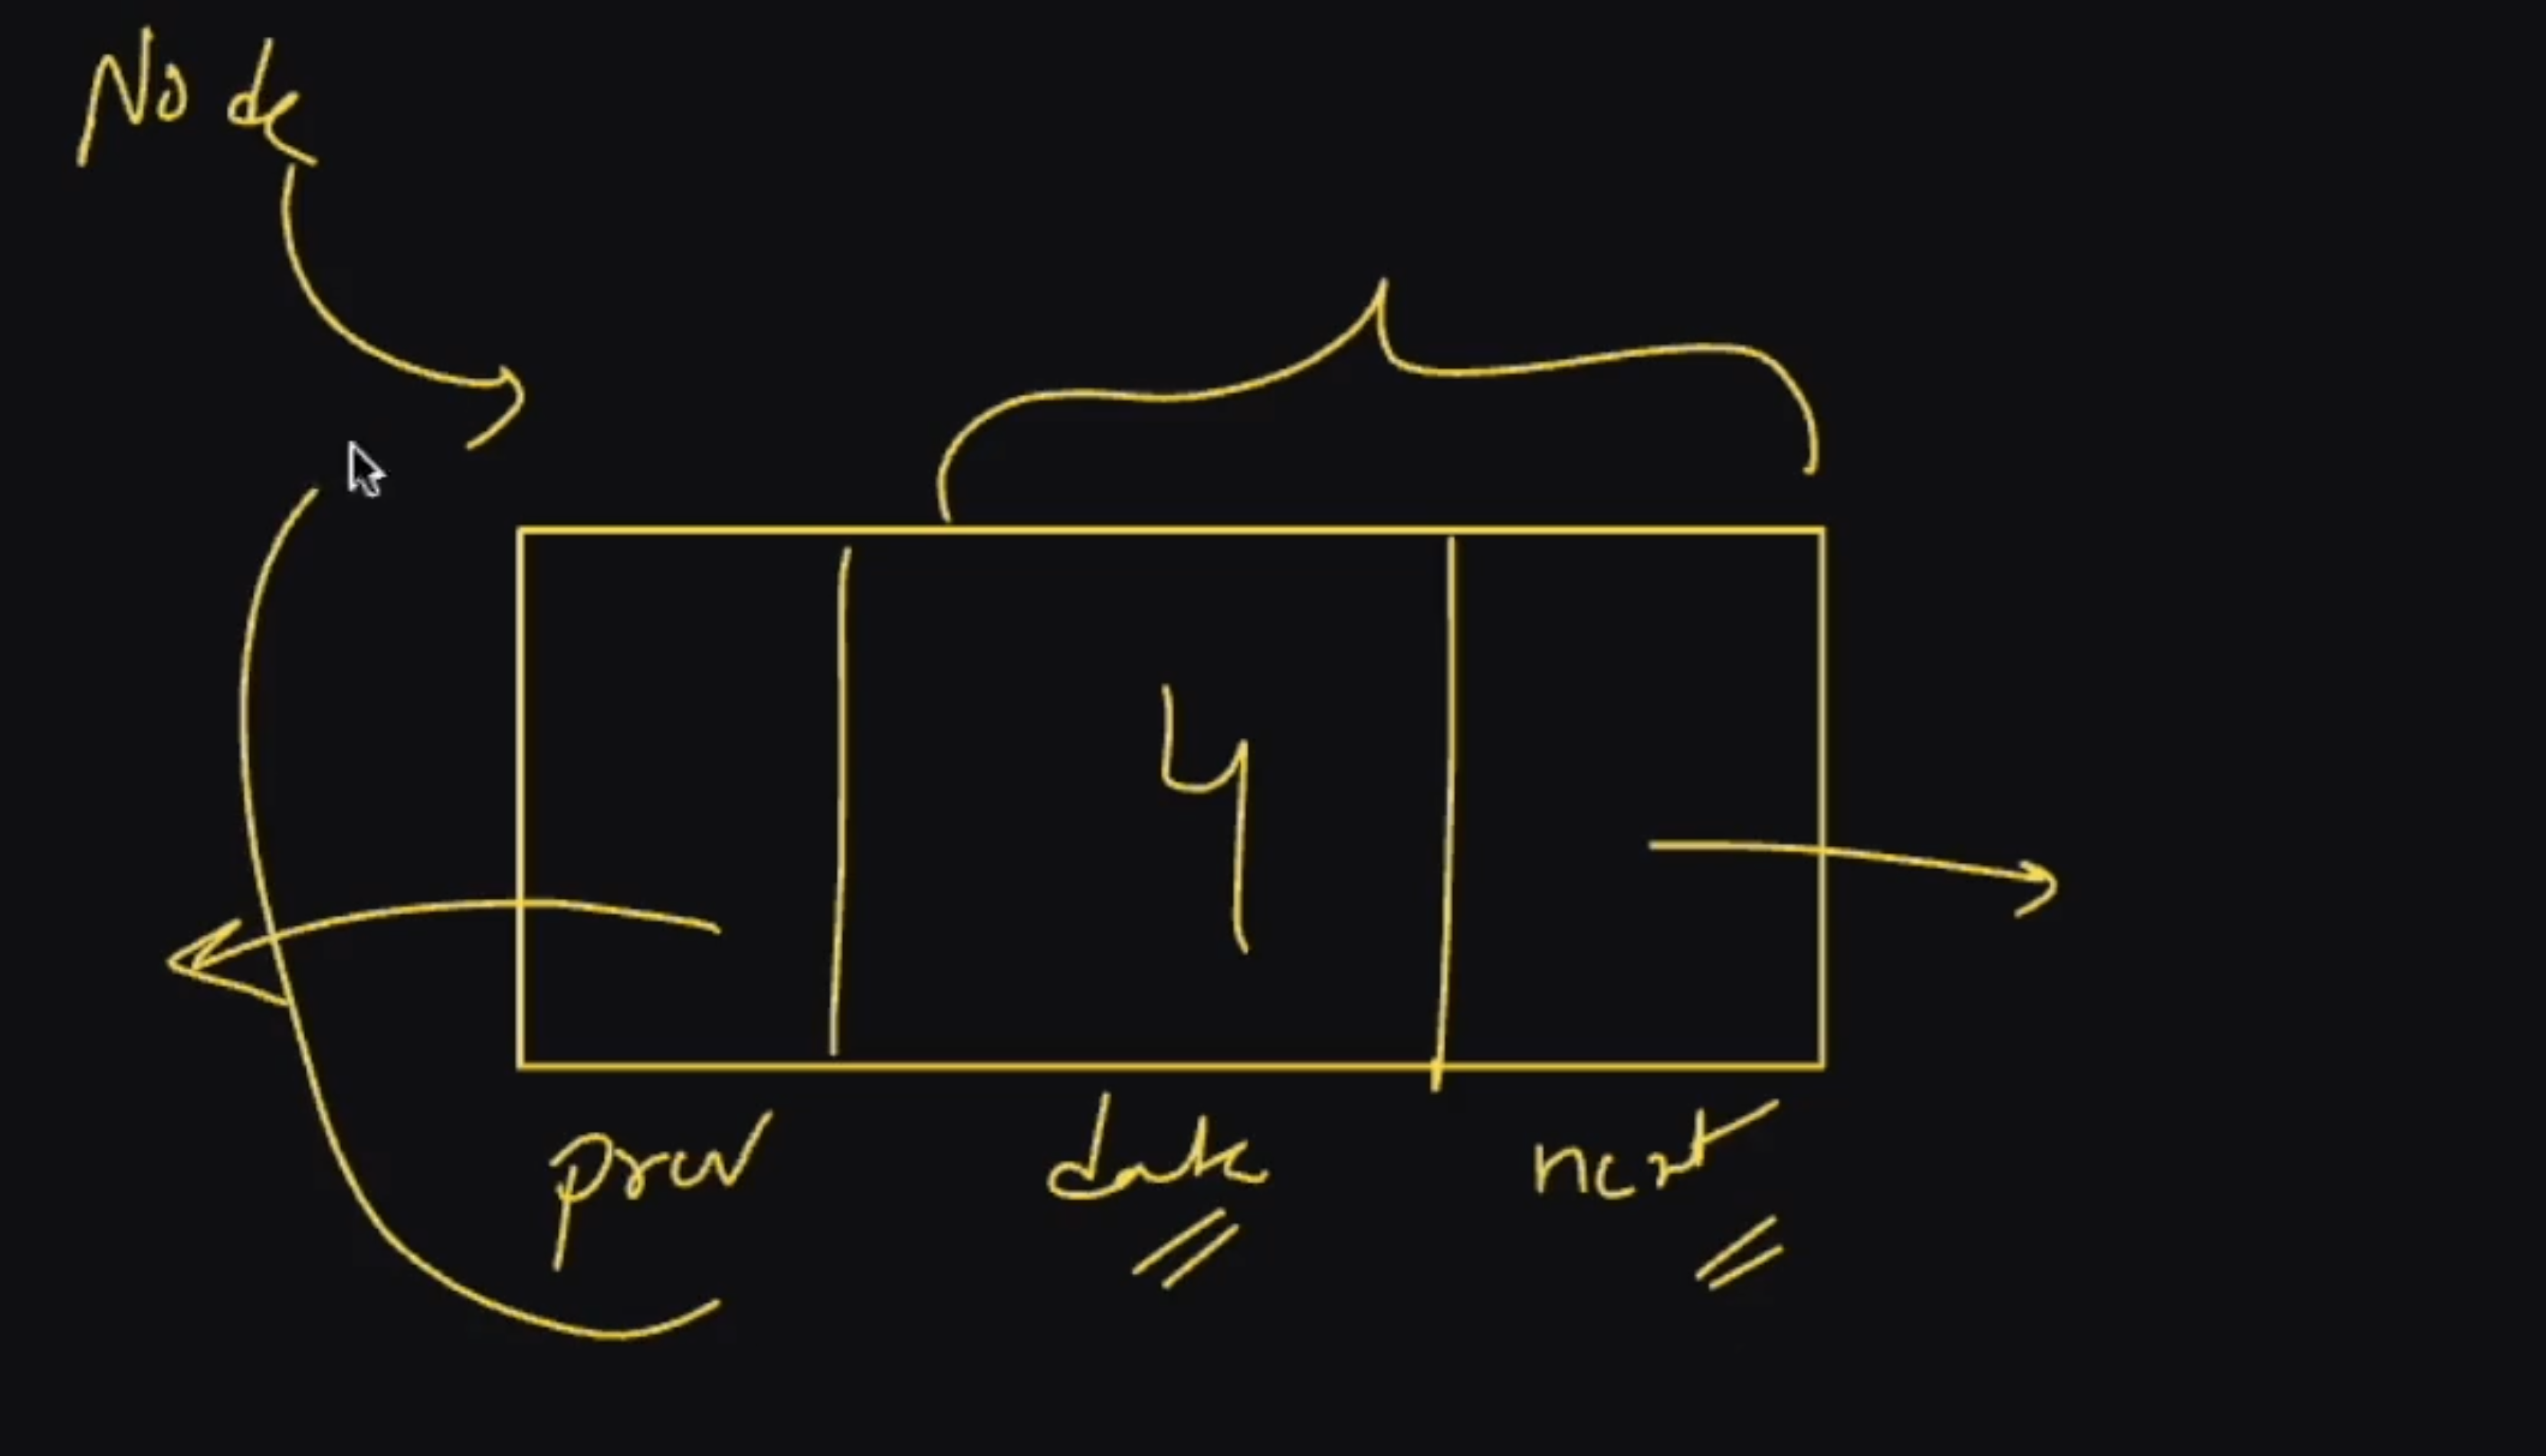 Node
4
prev data next